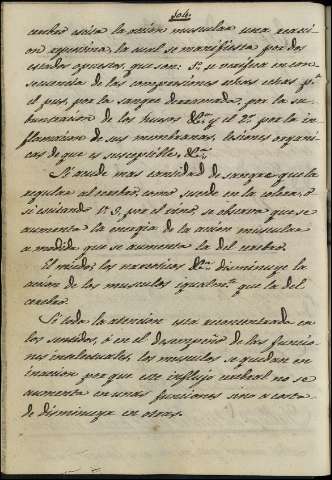 504.
cerebro esista la accion muscular una reaxi
on repentina, la cual se manifiesta por dos
estados opuestos, que son: 1.º se verifica en con
secuencia de las compresiones echas estas p.r
el pus, por la sangre derramada, por la su-
bintracion de los huesos &c.ª y el 2.º por la in
flamacion de sus membranas, lesiones organi
cas de que es susceptible &c.ª
Si acude mas cantidad de sangre que la
regular al cerebro, como sucede en la colera, o
si excitando por el vino, se observa que se
aumenta la energia de la accion muscular
a medida que se aumenta la del cerebro.
El miedo, los narcoticos &c.ª disminuye la
accion de los musculos igualm.te que la del
cerebro.
Si toda la atencion esta reconcentrada en
los sentidos, ó en el desempeño de las funcio
nes intelectuales, los musculos se quedan en
inaccion por que este influjo cerebral no se
aumenta en unas funciones sino a costa
de disminuir en otras.